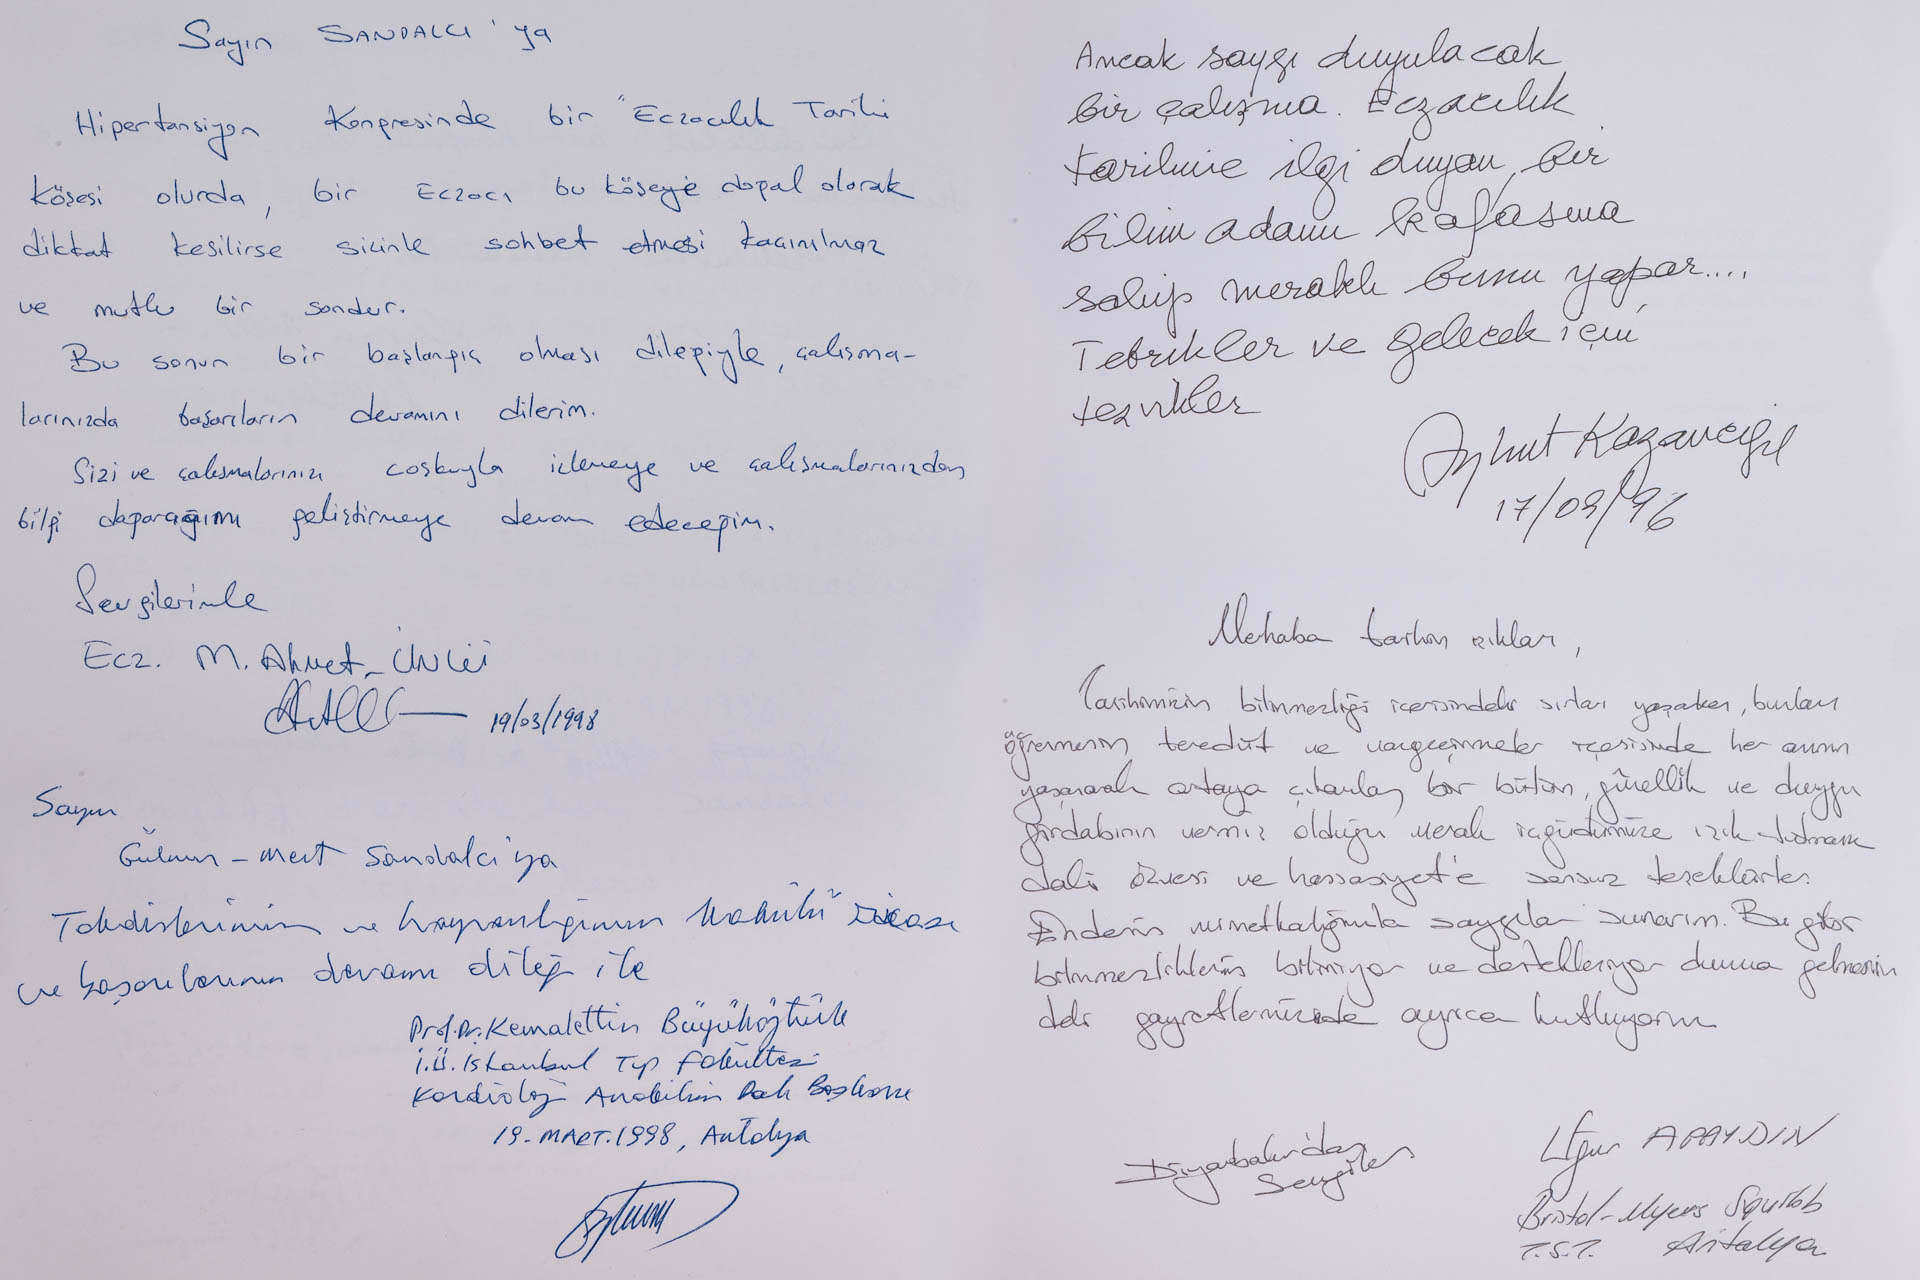 Sayın SANDALCI'ya
Hipertansiyon Kongresinde bir "Eczacılık Tarihi
Köşesi olurda, bir Eczacı bu köşeye doğal olarak
dikkat kesilirse sizinle sohbet etmesi kaçınılmaz
ve mutlu bir sondur.
Bu sonun bir başlangıç olması dileğiyle, çalışma-
larınızda başarıların devamını dilerim.
Sizi ve çalışmalarınızı coşkuyla izlemeye ve çalışmalarınızdan
bilgi dağarcığımı geliştirmeye devam edeceğim.
Sevgilerimle
Ecz. M. Ahmet
19/03/1998
Sayın
Gülnur - Mert Sandalcı'ya
Takdirlerimin ve hayranlığımın kabulü ricası
ve başarılarının devamı dileği ile
Prof. Dr. Kemalettin Büyüköztürk
İ.Ü. İstanbul Tıp Fakültesi
Kardioloji Anabilim Dalı Başkanı
19. MART. 1998, Antalya
Ancak saygı duyulacak
bir çalışma. Eczacılık
tarihine ilgi duyan, bir
bilim adamı kafasına
sahip meraklı bunu yapar....
Tebrikler ve gelecek için
teşvikler
Aykut Kazancıgil
17/09/96
Merhaba tarihin
Tarihimizin bilinmezliği içerisindeki sırları yaşarken, bunları
öğrenmenin tereddüt ve vazgeçinmeler içerisinde her anını
yaşanarak ortaya çıkarılan bir bütün, güzellik ve duygu
girdabının vermiş olduğu merak içgüdümüze ışık tutmanın
özverisi ve hassasiyet'e sonsuz teşekkürler.
minnetkarlığımla saygılar sunarım. Bu gibi
bilinmezliklerin bilmiyor ve destekleniyor duruma gelmenin
deki gayretlerinizide ayrıca kutluyorum
Diyarbakır'dan
Sevgiler
Uğur APAYDIN
Bristol-Myers Squibb
T.S.T. Antalya